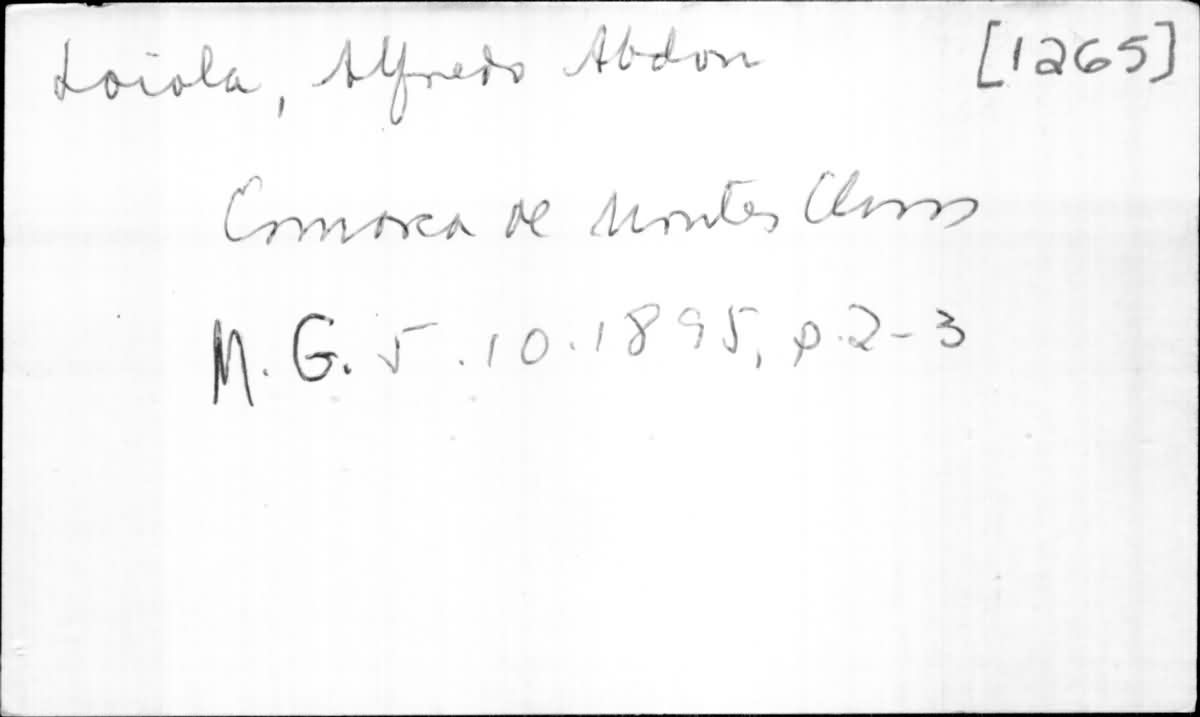 Loiola, Alfredo Abdon [1265]
Comarca de Montes Claros
M. G. 5.10.1895, p.2-3